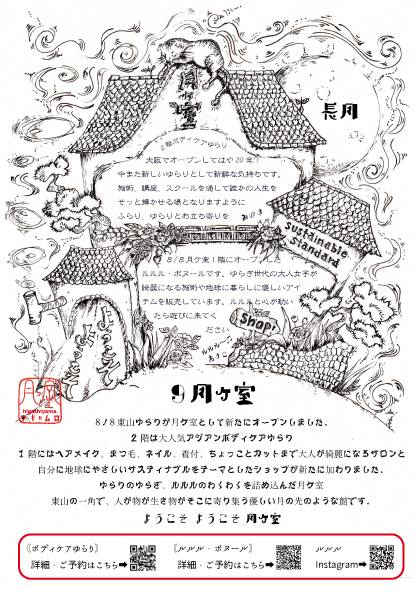 月ヶ室
長月
2階ボディケアゆらり
大阪でオープンしてはや20年!
今また新しいゆらりとして新鮮な気持ちです。
施術、講座、スクールを通して誰かの人生を
そっと輝かせる場となりますように
ふらり、ゆらりとお立ち寄りを
8/8月ケ室1階にオープンした
ルルル・ボヌールです。ゆらぎ世代の大人女子が
綺麗になる施術や地球に暮らしに優しいアイ
テムを販売しています。ルルルと心が動い
たら遊びに来てく
ださい
Sustainable
Standard
Shop!
ようこそ
ようこそ
higashiyama
9月ヶ室
8/8東山ゆらりが月ケ室として新たにオープンしました。
2階は大人気アジアンボディケアゆらり
1階にはヘアメイク、まつ毛、ネイル、着付、ちょっとカットまで大人が綺麗になるサロンと
自分に地球にやさしいサスティナブルをテーマとしたショップが新たに加わりました。
ゆらりのゆらぎ、ルルルのわくわくを詰め込んだ月ケ室
東山の一角で、人が物が生き物がそこに寄り集う優しい月の光のような館です。
ようこそ ようこそ 月ケ室
〖ボディケアゆらり〗
詳細・ご予約はこちら➡
〖ルルル・ボヌール〗
詳細・ご予約はこちら➡
ルルル
Instagram➡